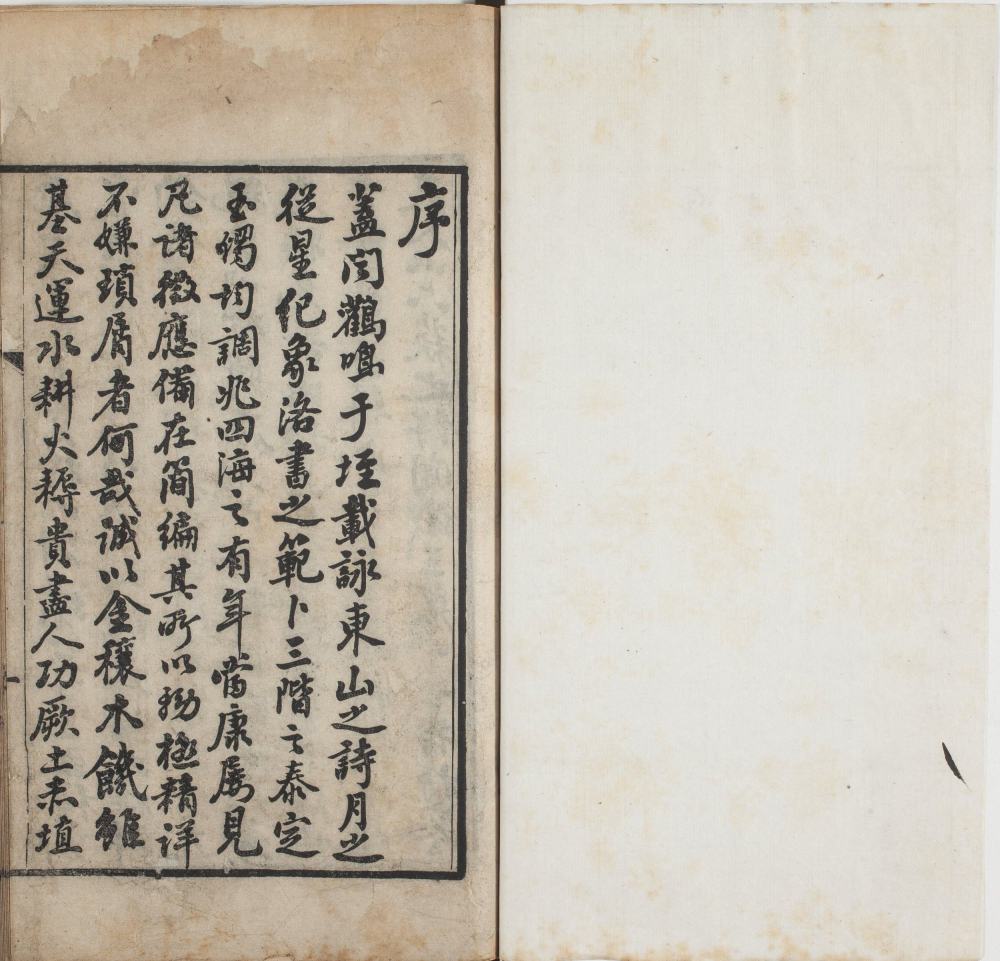 序
蓋聞鸛鳴于垤載詠東山之詩月之
從星紀象洛書之範卜三階之泰定
玉燭均調兆四海之有年嘗康屢見
凡諸徵應備在簡編其所以極精詳
不嫌瑣屑者何哉誠以金穰木饑雖
基天運水耕火耨貴盡人功厥土赤埴